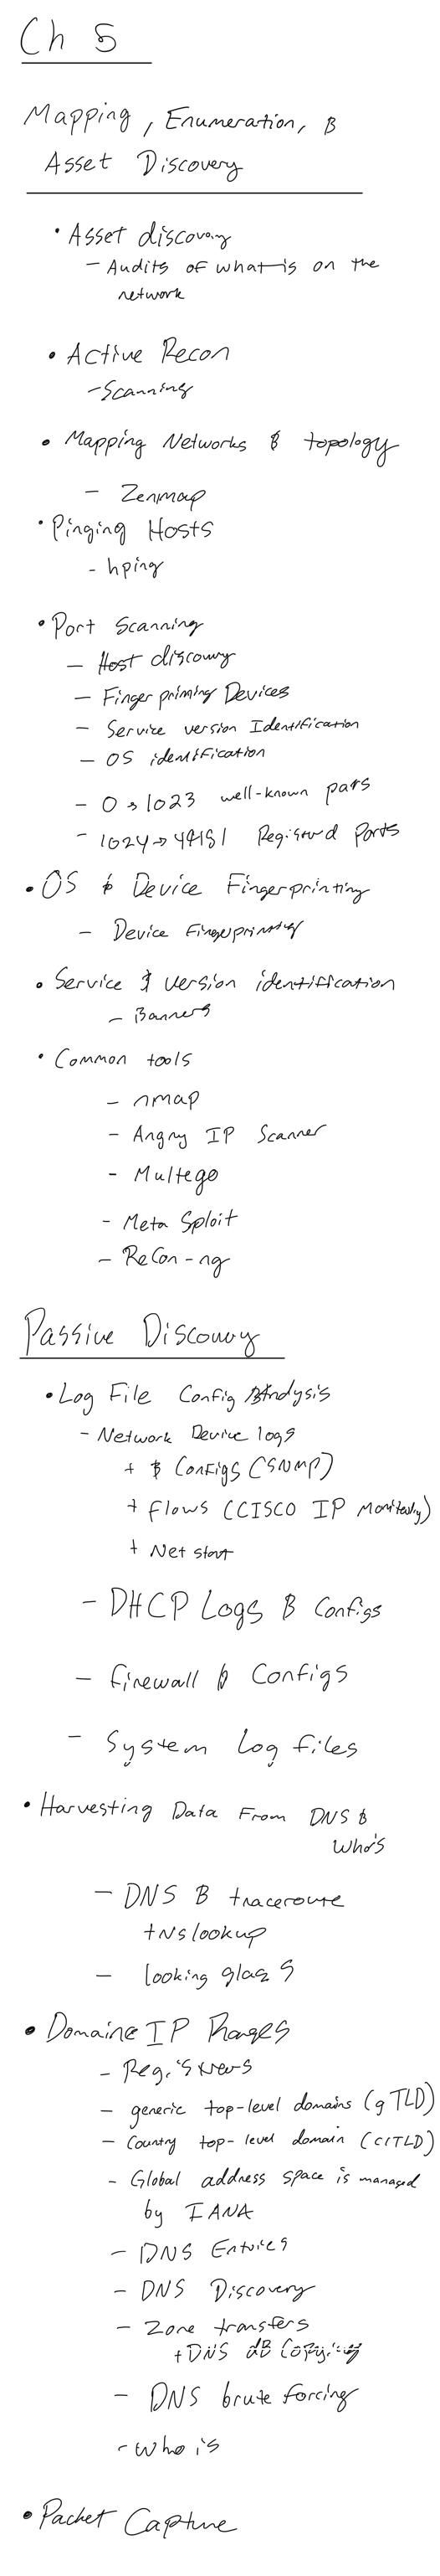 Ch 5
Mapping, Enumeration, &
Asset Discovery
• Asset discovery
- Audits of what is on the
network
• Active Recon
- Scanning
• Mapping Networks & topology
- Zenmap
• Pinging Hosts
- hping
• Port Scanning
- Host discovery
- Finger printing Devices
- Service version Identification
- OS identification
- 0 → 1023 well-known ports
- 1024 → 49151 Registered Ports
• OS & Device Fingerprinting
- Device Fingerprinting
• Service & Version identification
- Banners
• Common tools
- nmap
- Angry IP Scanner
- Multego
- Meta Sploit
- ReCon-ng
Passive Discovery
• Log File Config Analysis
- Network Device logs
+ & Configs (SNMP)
+ flows (CISCO IP Monitoring)
+ Net start
- DHCP Logs & Configs
- firewall & Configs
- System Log files
• Harvesting Data From DNS &
Who's
- DNS & traceroute
+ Nslookup
- looking glass
• Domains IP Ranges
- Registrars
- generic top-level domains (gTLD)
- Country top-level domain (ccTLD)
- Global address space is managed
by IANA
- DNS Entries
- DNS Discovery
- Zone transfers
+ DNS dB Copying
- DNS brute forcing
- Who is
• Packet Capture